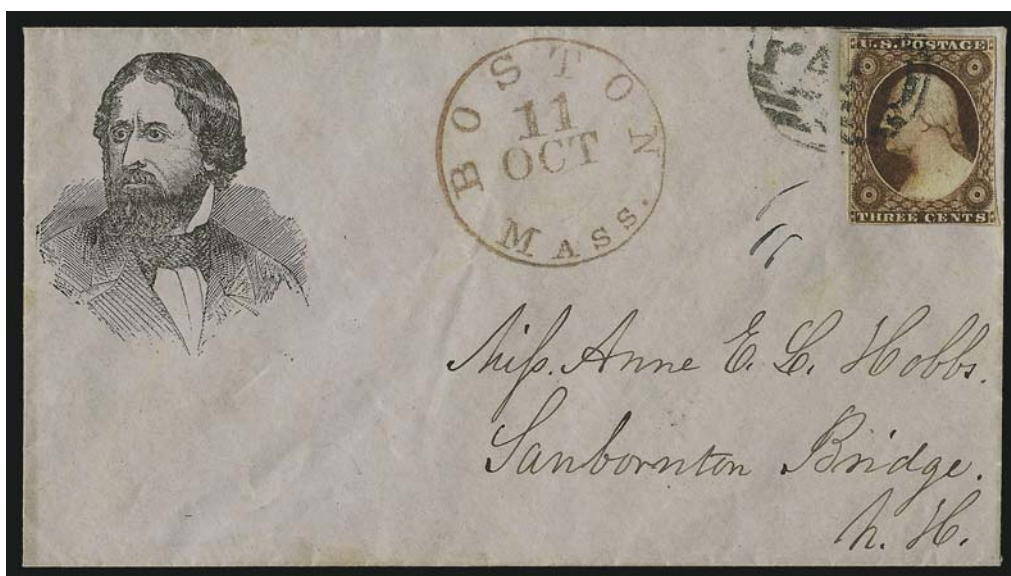 BOSTON
11
OCT
MASS.
PA
U.S. POSTAGE
THREE CENTS
Miſs. Anne E. L. Hobbs.
Sanbornton Bridge.
N. H.